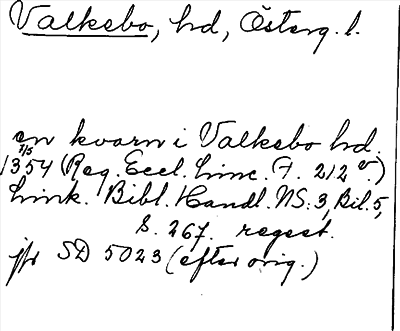 Valkebo, hd, Österg. l.
en kvarn i Valkebo hd.
1/5
1354 (Reg. Eccl. Linc. F. 212 v.)
Link. Bibl. Handl. NS. 3, Bil. 5,
S. 267. regest.
jfr SD 5023 (efter orig.)